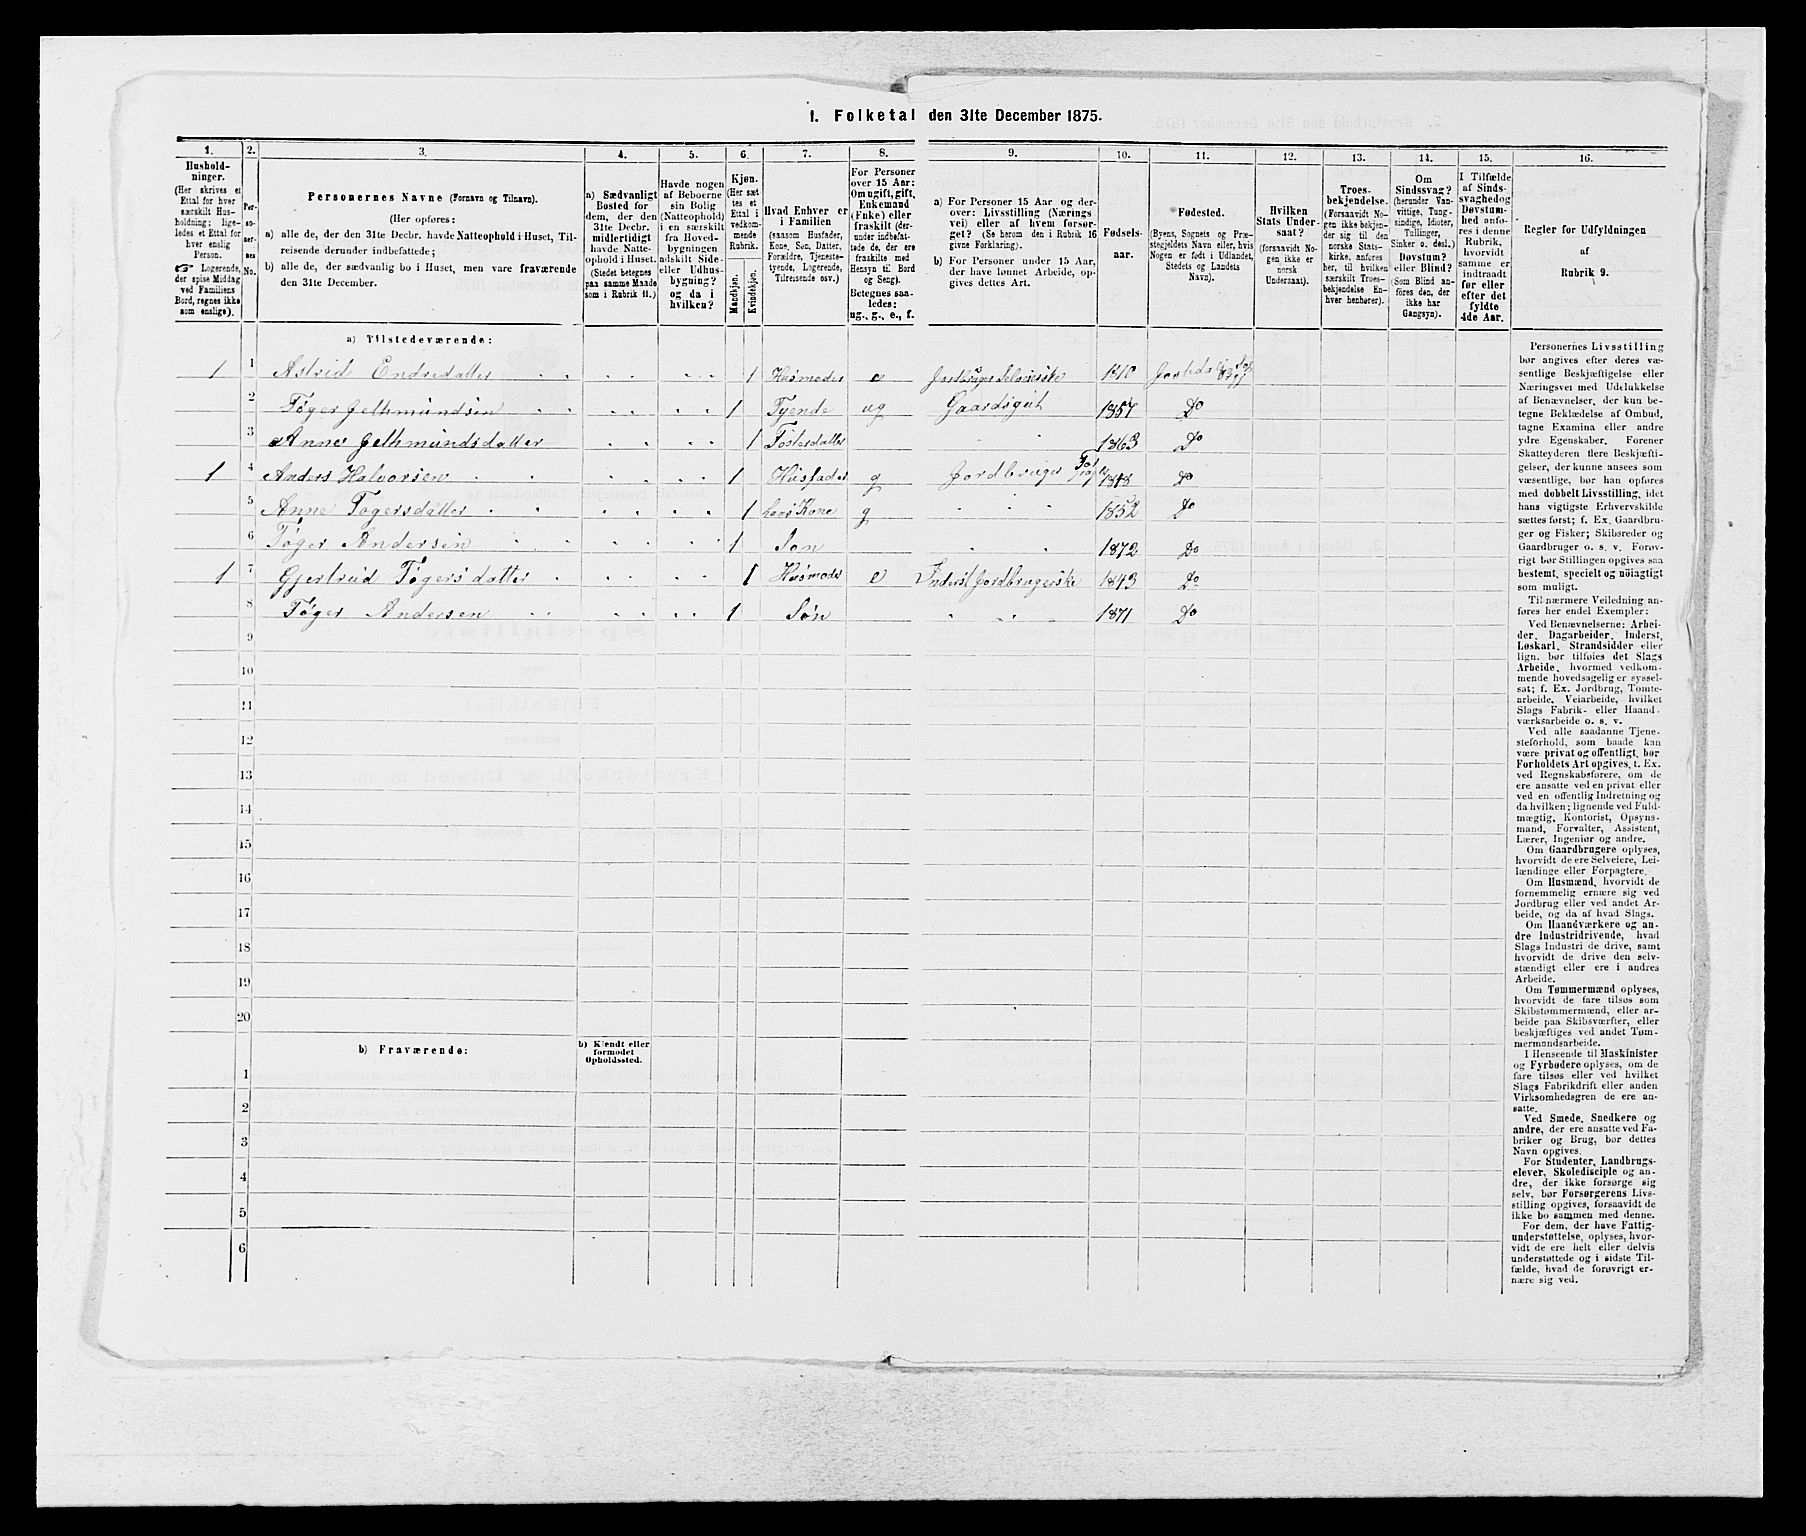 1. Folketal den 31te December 1875.
1. 2. 3. 4. 5. 6. 7. 8. 9. 10. 11. 12. 13. 14. 15. 16.
Hushold-
ninger.
(Her skrives et
Ettal for hver
særskilt Hus-
holdning; lige-
ledes et Ettal for
hver enslig
Person.
☞ Logerende,
der spise Middag
ved Familiens
Bord, regnes ikke
som enslige).
Per-
so-
ner-
nes
No.
Personernes Navne (Fornavn og Tilnavn).
(Her opføres:
a) alle de, der den 31te Decbr. havde Natteophold i Huset, Til-
reisende derunder indbefattede;
b) alle de, der sædvanlig bo i Huset, men vare fraværende
den 31te December.
a) Sædvanligt
Bosted for
dem, der den
31te Decbr.
midlertidigt
havde Natte-
ophold i Huset.
(Stedet betegnes
paa samme Maade
som i Rubrik 11.)
Havde nogen
af Beboerne
sin Bolig
(Natteophold)
i en særskilt
fra Hoved-
bygningen
adskilt Side-
eller Udhus-
bygning?
og da i
hvilken?
Kjøn.
(Her sæt
tes et
Ettal i
vedkom-
mende
Rubrik.
Mandkjøn.
Kvindekjøn.
Hvad Enhver er
i Familien
(saasom Husfader,
Kone, Søn, Datter,
Forældre, Tjeneste-
tyende, Logerende,
Tilreisende osv.)
For Personer
over 15 Aar:
Om ugift, gift,
Enkemand
(Enke) eller
fraskilt (der-
under indbefat-
tede de, der ere
fraskilte med
Hensyn til Bord
og Seng).
Betegnes saa-
ledes:
ug., g., e., f.
a) For Personer 15 Aar og der-
over: Livsstilling (Nærings
vei) eller af hvem forsør-
get? (Se herom den i Rubrik 16
givne Forklaring).
b) For Personer under 15 Aar,
der have lønnet Arbeide, op-
gives dettes Art.
Fødsels-
aar.
Fødested.
(Byens, Sognets og Præ-
stegjeldets Navn eller, hvis
Nogen er født i Udlandet,
Stedets og Landets
Navn).
Hvilken
Stats Under-
saat?
(forsaavidt No-
gen ikke er
norsk
Undersaat).
Troes-
bekjendelse.
(Forsaavidt No-
gen ikke bekjen-
der sig til den
norske Stats-
kirke, anføres
her, til hvilken
særskilt Troes-
bekjendelse En-
hver henhører).
Om
Sindssvag?
(herunder Van-
vittige, Tung-
sindige, Idioter,
Tullinger,
Sinker o. desl.)
Døvstum?
eller Blind?
(Som Blind an-
føres den, der
ikke har
Gangsyn).
I Tilfælde
af Sinds-
svaghed og
Døvstum-
hed anfø-
res i denne
Rubrik,
hvorvidt
samme er
indtraadt
før eller
efter det
fyldte
4de Aar.
Regler for Udfyldningen
af
Rubrik 9.
a) Tilstedeværende:
1 1 Astrid Endredatter 1 Husmoder e 1810
2 Tøger Jelhmundsen 1 Tyende ug Gaardsgut 1857 Do
3 Anne Jelhmundsdatter 1 Fosterdatter 1863 Do
1 4 Anders Halvorsen 1 Husfader g Jordbruger 1848 Do
5 Anne Tøgersdatter 1 hans Kone g 1852 Do
6 Tøger Andersen 1 Søn 1872 Do
1 7 Gjertrud Tøgersdatter 1 Husmoder e Inderst Jordbrugerske 1843 Do
8 Tøger Andersen 1 Søn 1871 Do
9
10
11
12
13
14
15
16
17
18
19
20
b) Fraværende:
b) Kjendt eller
formodet
Opholdssted.
1
2
3
4
5
6
Personernes Livsstilling
bør angives efter deres væ-
sentlige Beskjæftigelse eller
Næringsvei med Udelukkelse
af Benævnelser, der kun be-
tegne Beklædelse af Ombud,
tagne Examina eller andre
ydre Egenskaber. Forener
Skatteyderen flere Beskjæfti-
gelser, der kunne ansees som
væsentlige, bør han opføres
med dobbelt Livsstilling, idet
hans vigtigste Erhvervskilde
sættes først; f. Ex. Gaardbru-
ger og Fisker; Skibsreder og
Gaardbruger o. s. v. Forøv-
rigt bør Stillingen opgives saa
bestemt, specielt og nøiagtigt
som muligt.
Til nærmere Veiledning an-
føres her endel Exempler:
Ved Benævnelserne: Arbei-
der, Dagarbeider, Inderst,
Løskarl, Strandsidder eller
lign. bør tilføies det Slags
Arbeide, hvormed vedkom-
mende hovedsagelig er syssel-
sat; f. Ex. Jordbrug, Tomte-
arbeide, Veiarbeide, hvilket
Slags Fabrik- eller Haand-
værksarbeide o. s. v.
Ved alle saadanne Tjene-
steforhold, som baade kan
være privat og offentligt, bør
Forholdets Art opgives, t. Ex.
ved Regnskabsførere, om de
ere ansatte ved en privat eller
ved en offentlig Indretning og
da hvilken; lignende ved Fuld-
mægtig, Kontorist, Opsyns-
mand, Forvalter, Assistent,
Lærer, Ingeniør og andre.
Om Gaardbrugere oplyses,
hvorvidt de ere Selveiere, Lei-
lændinge eller Forpagtere.
Om Husmænd, hvorvidt de
fornemmelig ernære sig ved
Jordbrug eller ved andet Ar-
beide, og da af hvad Slags.
Om Haandværkere og an-
dre Industridrivende, hvad
Slags Industri de drive, samt
hvorvidt de drive den selv-
stændigt eller ere i andres
Arbeide.
Om Tømmermænd oplyses,
hvorvidt de fare tilsøs som
Skibstømmermænd, eller ar-
beide paa Skibsværfter, eller
beskjæftiges ved andet Tøm-
mermandsarbeide.
I Henseende til Maskinister
og Fyrbødere oplyses, om de
fare tilsøs eller ved hvilket
Slags Fabrikdrift eller anden
Virksomhedsgren de ere an-
satte.
Ved Smede, Snedkere og
andre, der ere ansatte ved Fa-
briker og Brug, bør dettes
Navn opgives.
For Studenter, Landbrugs-
elever, Skoledisciple og an-
dre, der ikke forsørge sig
selv, bør Forsørgerens Livs-
stilling opgives, forsaavidt de
ikke bo sammen med denne.
For dem, der have Fattig-
understøttelse, oplyses, hvor-
vidt de ere helt eller delvis
understøttede og i sidste Til-
fælde, hvad de forøvrigt er-
nære sig ved.